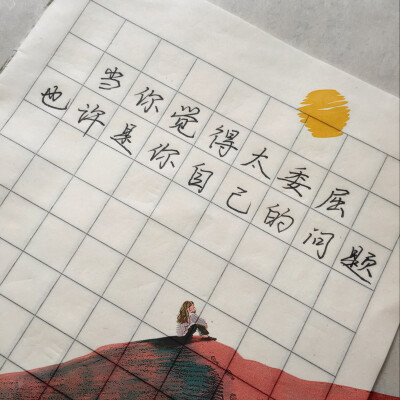 当你觉得太委屈
也许是你自己的问题